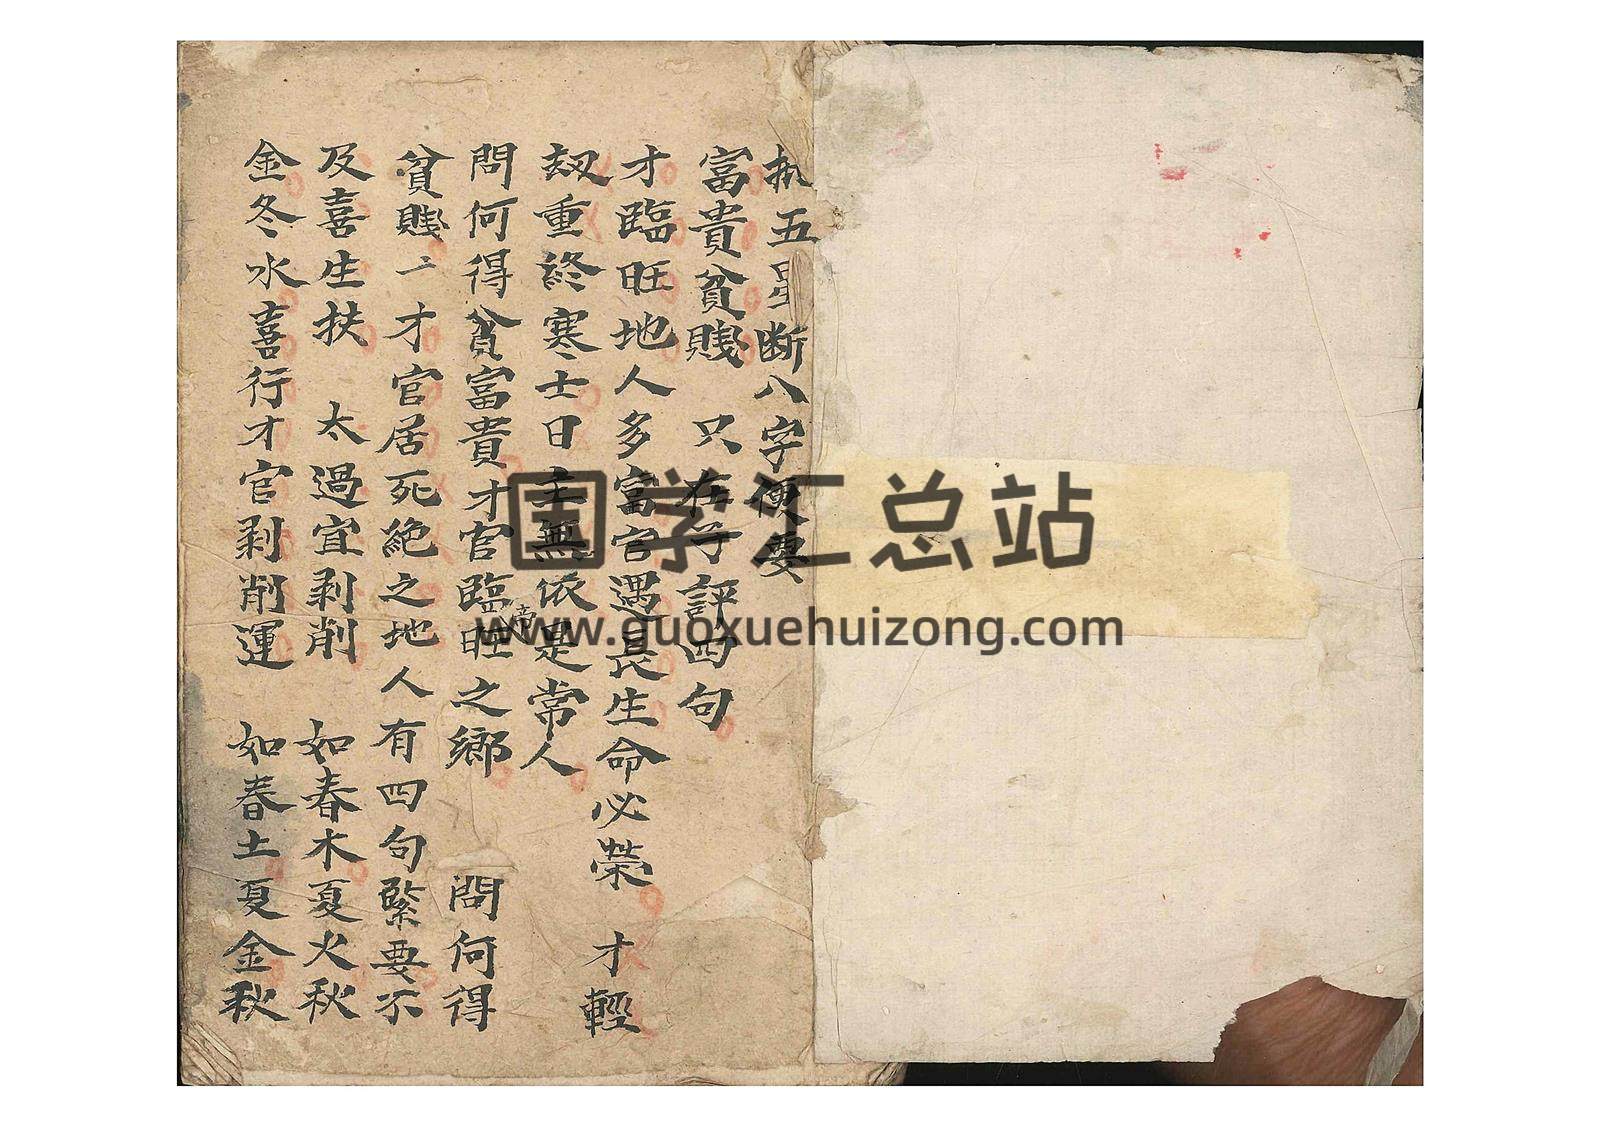 五星断八字便要
富貴貧賤　只在子評四句
才臨旺地人多富官遇長生命必榮　才輕
刼重終寒士日主無依是常人
問何得貧富貴才官臨帝旺之鄉　問何得
貧賤才官居死絶之地人有四句緊要不
及喜生扶　太過宜剥削　如春木夏火秋
金冬水喜行才官剥削運　如春土夏金秋
国学汇总站
www.guoxuehuizong.com